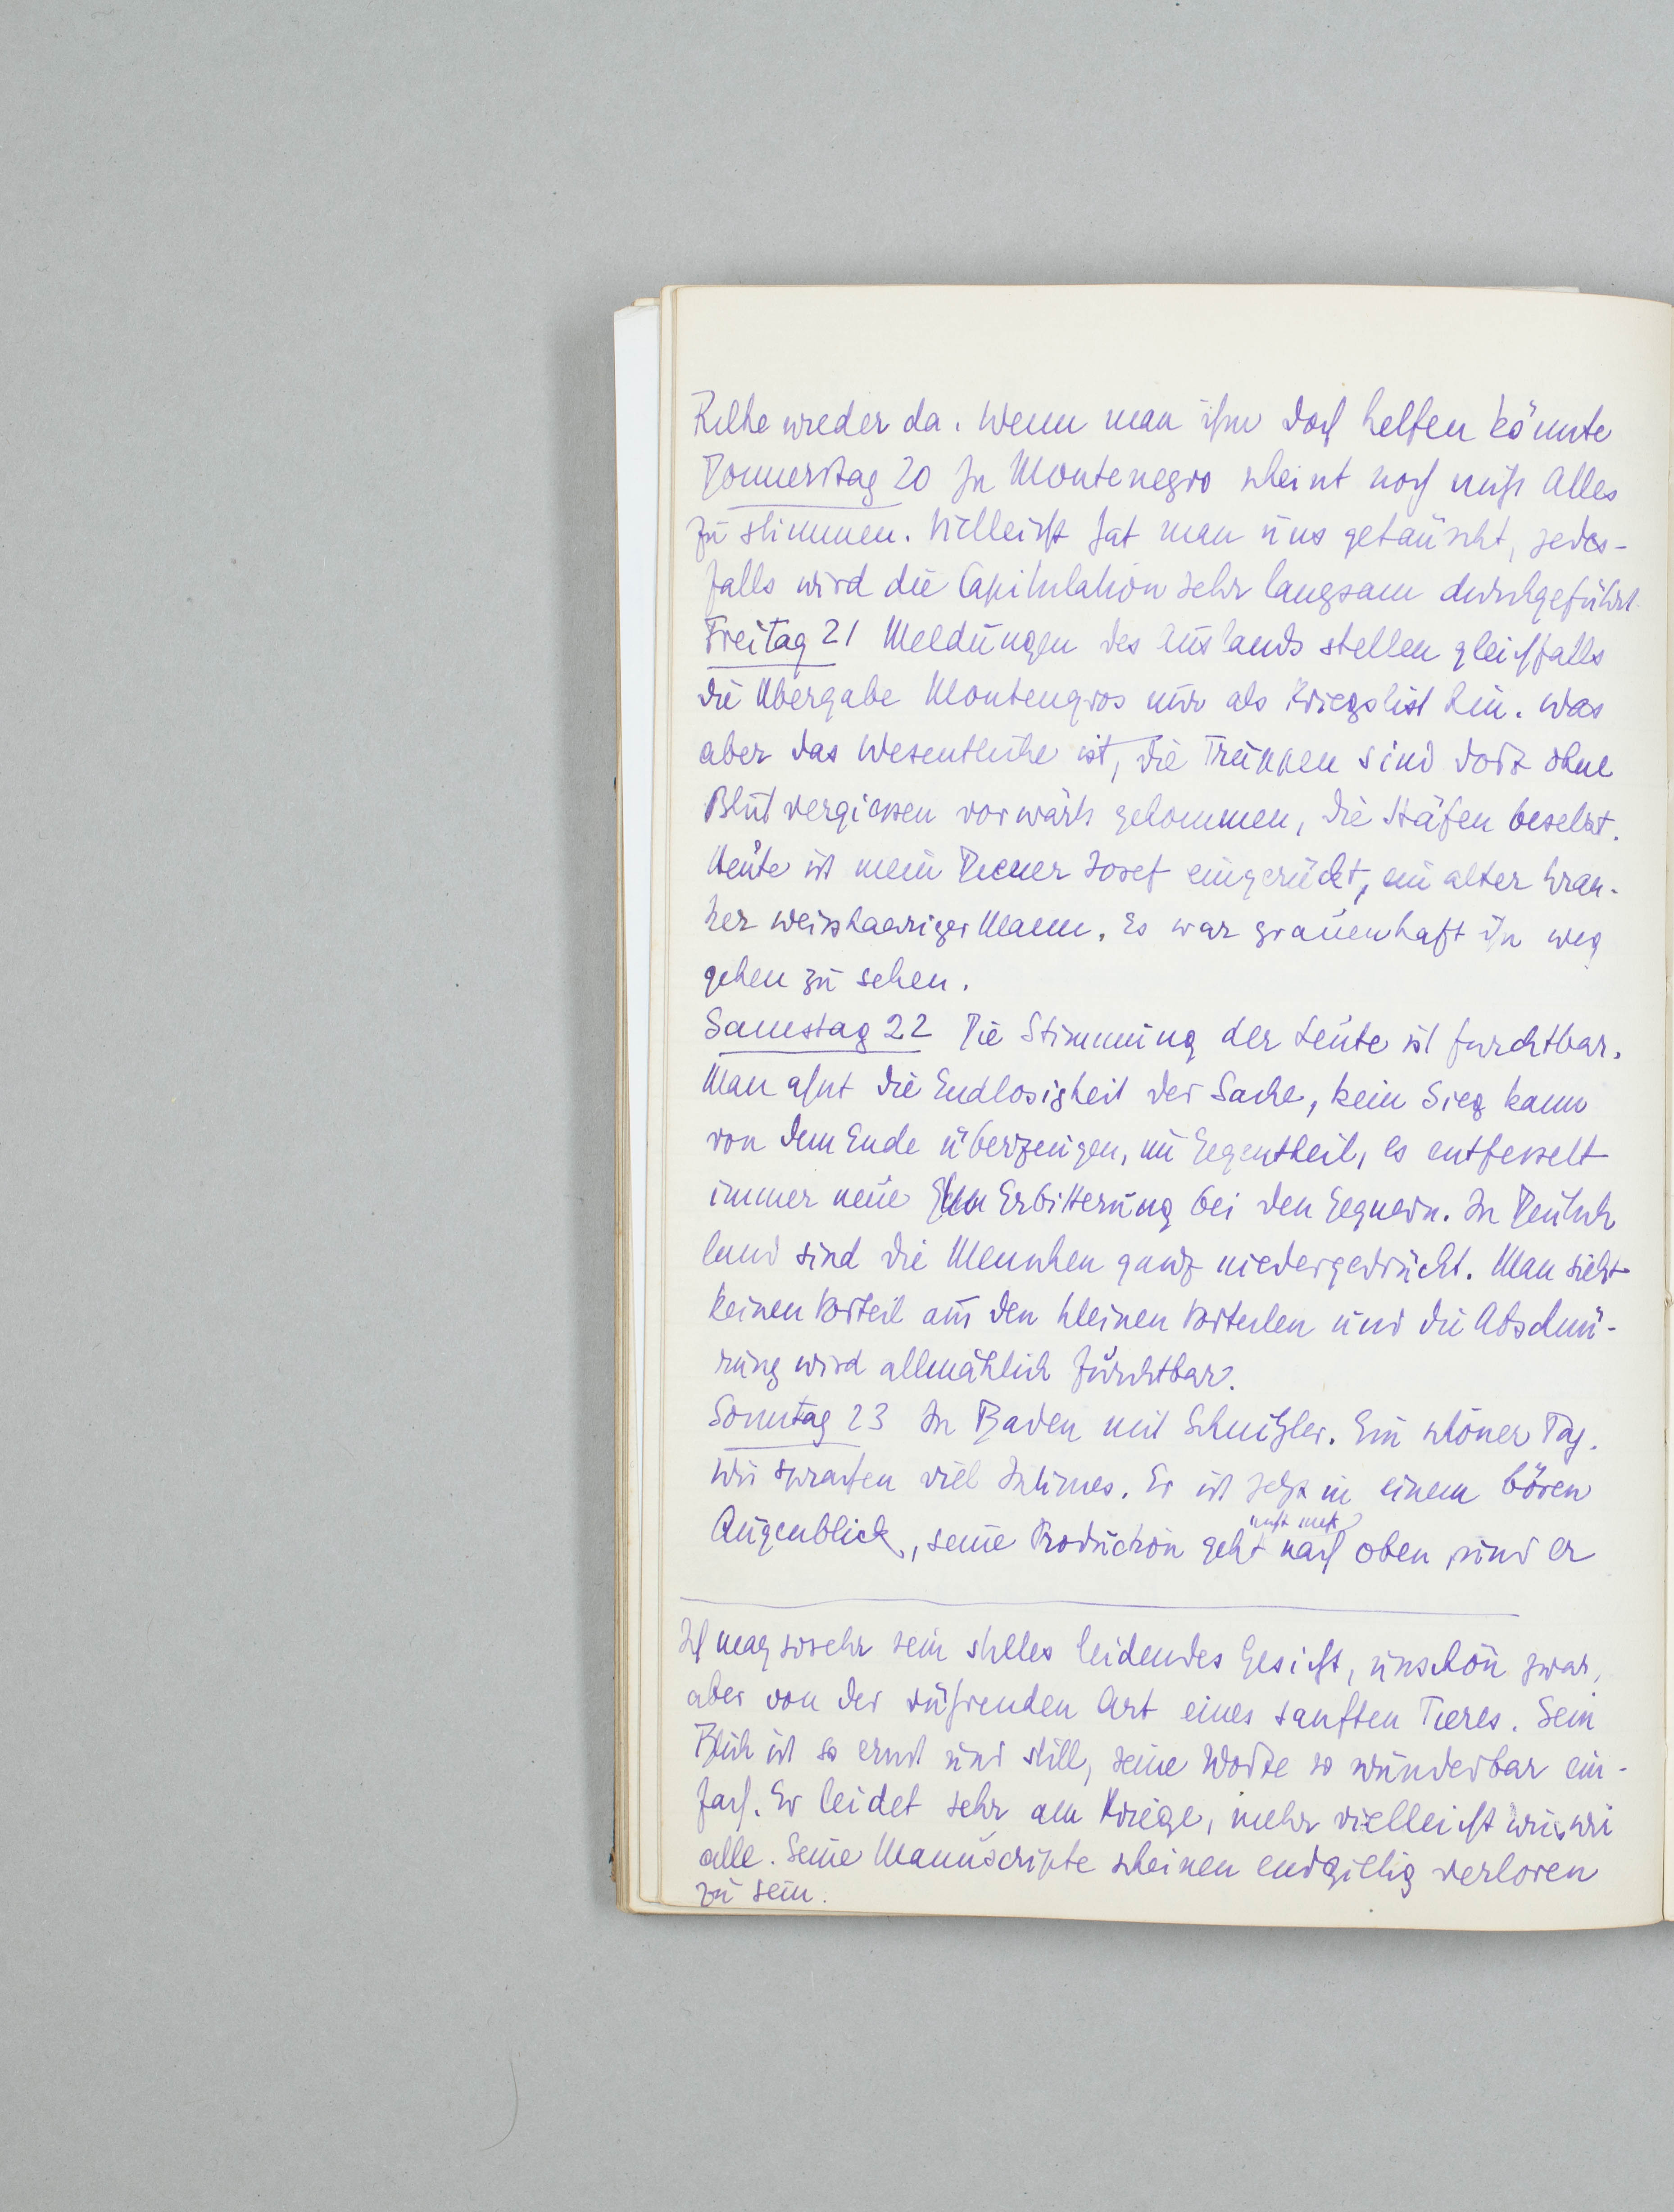 Rilke wieder da. Wenn man ihm doch helfen könnte
Donnerstag 20 In Montenegro scheint noch nicht Alles
zu stimmen. Vielleicht hat man uns getäuscht, jedes-
falls wird die Capitulation sehr langsam durchgeführt.
Freitag 21 Meldungen des Auslands stellen gleichfalls
die Übergabe Montengros nur als Kriegslist hin. Was
aber das Wesentliche ist, die Truppen sind dort ohne
Blutvergiessen vorwärts gekommen, die Häfen besetzt.
Heute ist mein Diener Josef eingerückt, ein alter kran-
ker weisshaariger Mann. Es war grauenhaft ihn weg
gehen zu sehen.
Samstag 22 Die Stimmung der Leute ist furchtbar.
Man ahnt die Endlosigkeit der Sache, kein Sieg kann
von dem Ende überzeugen, im Gegentheil, es entfesselt
immer neue Erbitterung bei den Gegnern. In Deutsch
land sind die Menschen ganz niedergedrückt. Man sieht
keinen Vorteil aus den kleinen Vorteilen und die Abschnü-
rung wird allmählich furchtbar.
Sonntag 23 In Baden mit Schnitzler. Ein schöner Tag.
Wir sprachen viel Intimes. Er ist jetzt in einem bösen
Augenblick, seine Production geht nicht mehr nach oben und er
Ich mag sosehr sein stilles leidendes Gesicht, unschön zwar,
aber von der rührenden Art eines sanften Tieres. Sein
Blick ist so ernst und still, seine Worte so wunderbar ein-
fach. Er leidet sehr am Kriege, mehr vielleicht wie wir
alle. Seine Manuscripte scheinen endgiltig verloren
zu sein.